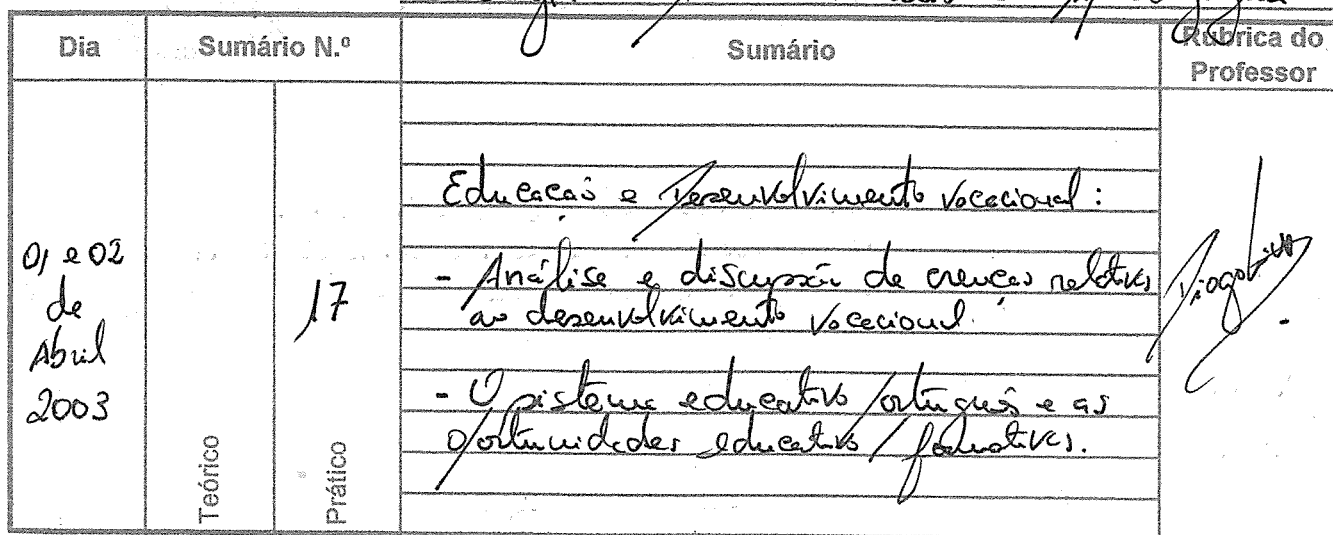 Dia
Sumário N.º
Sumário
Rubrica do
Professor
01 e 02
de
Abril
2003
Teórico
17
Prático
Educação e Desenvolvimento vocacional:
- Análise e discussão de crenças relativas
ao desenvolvimento vocacional.
- O sistema educativo português e as
oportunidades educativo / formativas.